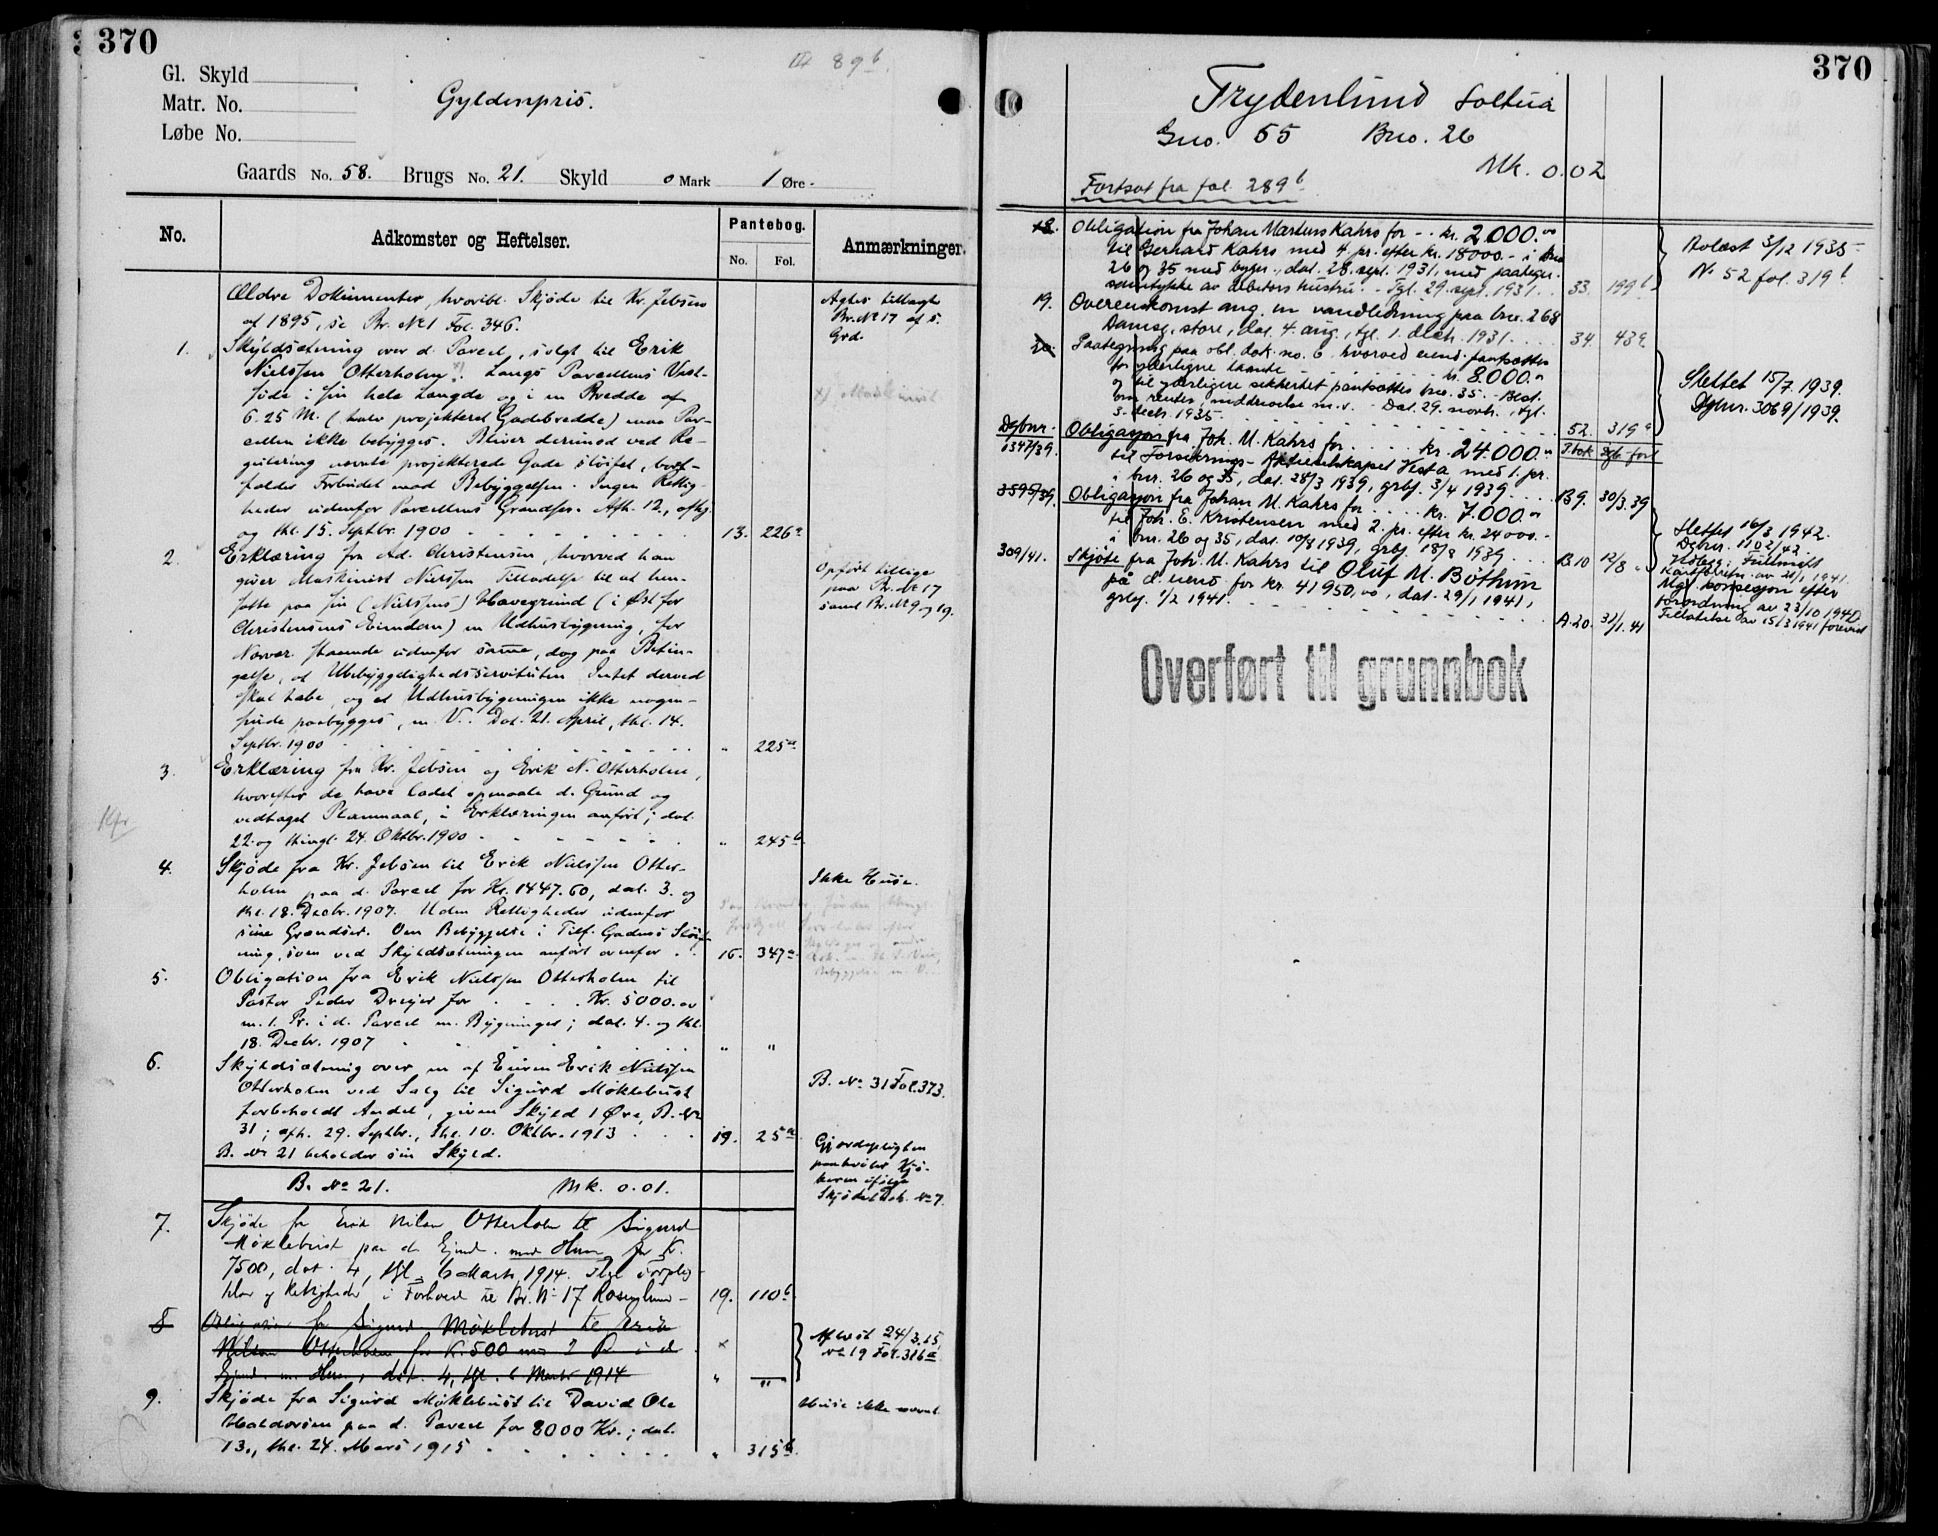 370
Gl. Skyld
Matr. No.
Løbe No.
Gyldenpris.
89b
Gaards No. 58. Brugs No. 21. Skyld 0 Mark 1 Øre.
No.
Adkomster og Heftelser.
Pantebog.
No. Fol.
Anmærkninger.
Ældre Dokumenter, hvoribl. Skjøde til Kr. Jebsen
af 1895, se Br. No 1 Fol. 346.
Agtes tillagte
Br. No 17 af s.
Grd.
1. Skyldsætning over d. Parcel, solgt til Erik
Nielssen Otterholm x). Langs Parcellens Vest-
side i sin hele Længde og i en Bredde af
x) Maskinist
6.25 M. (halv projekteret Gadebredde) maa Par-
cellen ikke bebygges. Bliver derimod ved Re-
gulering nævnte projekterede Gade sløifet, bort-
falder Forbudet mod Bebyggelsen. Ingen Rettig-
heder udenfor Parcellens Grændser. Afh. 12., afhj.
og thl. 15. Septbr. 1900 13. 226a
2. Erklæring fra Ad. Christensen, hvorved han
giver Maskinist Nielssen Tilladelse til at hen-
sætte paa sin (Nielssens) Havegrund (i Øst for
Christensens Eiendom) en Udhusbygning, for
Nærvær. staaende udenfor samme, dog paa Betin-
gelse, at Ubebyggelighedsservituten Intet derved
skal tabe, og at Udhusbygningen ikke nogen-
sinde paabygges, m. V. Dat. 21. April, thl. 14.
Septbr. 1900 " 225a
Opført tillige
paa Br. No 17
samt Br. No 9 og 19.
3. Erklæring fra Kr. Jebsen og Erik N. Otterholm,
hvorefter de have ladet opmaale d. Grund og
vedtaget Planmaal, i Erklæringen anført; dat.
22. og thingl. 24. Oktbr. 1900 " 245b
4. Skjøde fra Kr. Jebsen til Erik Nielssen Otter-
holm paa d. Parcel for Kr. 1447.60, dat. 3. og
thl. 18. Decbr. 1907. Uden Rettigheder udenfor
sine Grændser. Om Bebyggelse i Tilf. Gadens Sløif-
ning, som ved Skyldsætningen anført ovenfor 16. 347a
Ikke Huse.
5. Obligation fra Erik Nielssen Otterholm til
Pastor Peder Dreyer for Kr. 5000.00
m. 1. Pr. i d. Parcel m. Bygninger; dat. 4. og thl.
18. Decbr. 1907 " "
6. Skyldsætning over en af Eieren Erik Nielssen
Otterholm ved Salg til Sigurd Møklebust
forbeholdt Andel, given Skyld 1 Øre, B. No
31; afh. 29. Septbr., thl. 10. Oktbr. 1913 19. 25a
B. No 21 beholder sin Skyld.
B. No 31 Fol. 373.
B. No 21. Mk. 0.01.
Gjerdepligten
paahviler Kjø-
beren ifølge
Skjødet Dok. No 7.
7. Skjøde fra Erik Nilsen Otterholm til Sigurd
Møklebust paa d. Ejend. med Huse for Kr.
7500, dat. 4, tgl. 6 Marts 1914. Med Forplig-
telser og Rettigheder i Forhold til Br. No 17 Rosenlund 19. 110b
8 Obligation fra Sigurd Møklebust til Erik
Nilsen Otterholm for Kr. 500 med 2 Pr i d
Ejend. m. Huse, dat. 4, tgl. 6 Marts 1914 " "
Aflæst 24/3.15,
No 19 Fol. 316a
9. Skjøde fra Sigurd Møklebust til David Ole
Haldorsen paa d. Parcel for 8000 Kr.; dat.
13., thl. 24. Mars 1915 " 315b
Huse ikke nævnt
370
Frydenlund Soltun
Gno. 55 Bno. 26
Mk. 0.02
Fortsat fra fol. 289b
18. Obligation fra Johan Martens Kahrs for kr. 2000.00
til Gerhard Kahrs med 4 pr. efter kr. 18000.- i bno
26 og 35 med bygn., dat. 28. sept. 1931, med paategn.
samtykke av debitors hustru. - Tgl. 29. sept. 1931 33. 199b
Avlæst 3/12 1935
No 52 fol. 319b
19. Overenskomst ang. en vandledning paa bno. 268
Damsg. store, dat. 4. aug., tgl. 1. decbr. 1931 34 439
20. Paategning paa obl. dok. no. 6 hvorved eiend. pantsættes
for yderligere laante kr. 8.000.00
og til yderligere sikkerhet pantsættes bno. 35. - Best.
om renter, neddrivelse m.v. - Dat. 29. novb., tgl.
3. decb. 1935 52. 319a
Slettet 15/7 1939.
Dgbnr. 3069/1939.
Dgbnr. P.bok Dgb.-ført
1347/39. Obligasjon fra Joh. M. Kahrs for kr. 24.000.00
til Forsikrings-Aktieselskapet Vesta med 1. pr.
i bnr. 26 og 35, dat. 28/3 1939, grbf. 3/4 1939 B9. 30/3.39
3595/39. Obligasjon fra Johan M. Kahrs for kr. 7.000.00
til Joh. E. Kristensen med 2. pr. efter kr. 24000.-
i bnr. 26 og 35, dat. 10/8 1939, grbf. 18/8 1939 B.10 12/8
Slettet 16/3 1942.
Dgbnr. 1102/42.
309/41. Skjøte fra Joh. M. Kahrs til Oluf M. Bøthun
på d. eiend. for kr. 41950,00, dat. 29/1 1941,
grbf. 1/2 1941. A.20. 31/1.41
Mgl. konsesjon efter
forordning av 23/10 1940.
Tillatelse av 15/3 1941 forevist
Overført til grunnbok